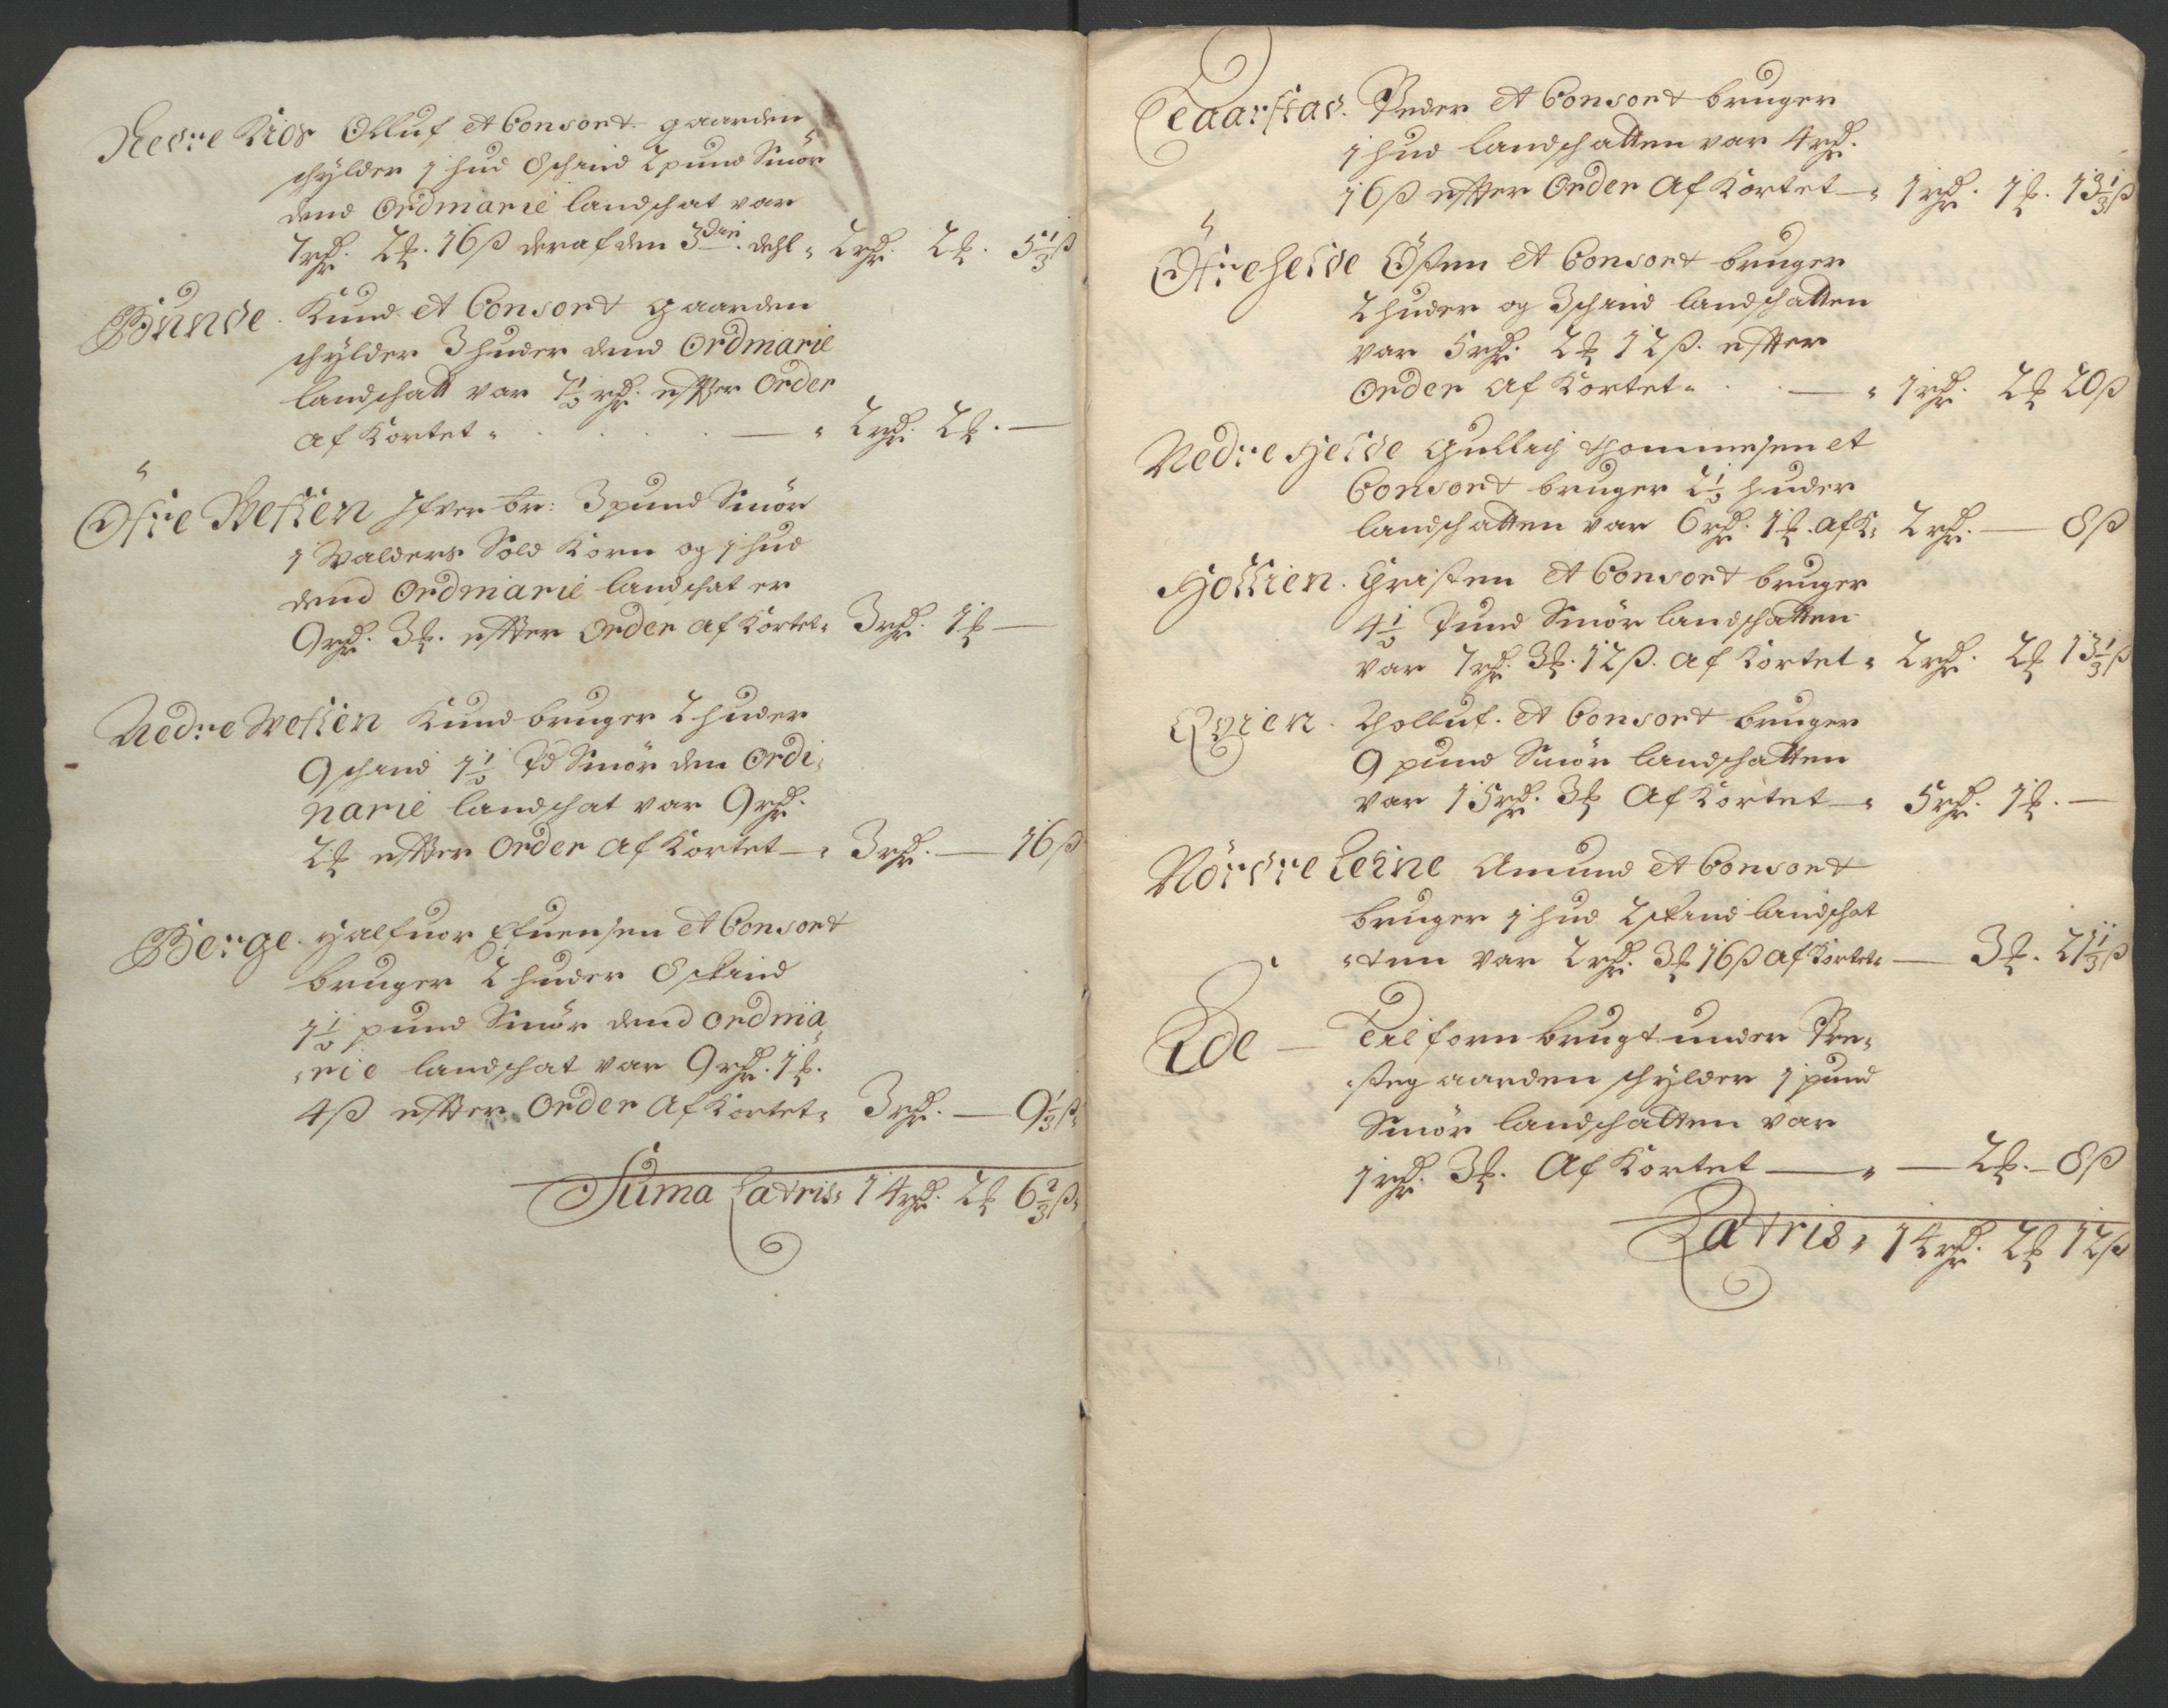 Nedre Kior Olluf et Consort. gaarden
schÿlder 1 hud 8 schind 2 pund Smör
dend Ordinarie landschat var
7 rdr. 2 ₰. 16 ß deraf den 3den. dehl „ 2 rdr. 2 ₰. 5 1/3 ß
Bunde. Knud et Consort gaarden
schÿlder 3 huder dend Ordinarie
landschatt var 7 1/2 rdr. effter Order
af Kortet „ . . . . — „ 2 rdr. 2 ₰. —
Öfre Westen Ifver br: 3 pund Smör
1 Walders Sold Korn og 1 hud
dend Ordinarie landschat er
9 rdr. 3 ₰. effter Order af Kortet „ 3 rdr. 1 ₰ —
Nedre Westen Knud bruger 2 huder
9 schind 1 1/2 Pd Smör den Ordi„
narie landschat var 9 rdr.
2 ₰ effter Order af Kortet — „ 3 rdr. — 16 ß
Berge. Halfuor Efuensen et Consort
bruger 2 huder 8 skind
1 1/2 pund Smör dend Ordina„
„rie landschat var 9 rdr. 1 ₰.
4 ß effter Order af Kortet „ 3 rdr. — 9 1/3 ß „
Suma Latris „ 14 rdr. 2 ₰ 6 2/3 ß „
Peder et Consort bruger
1 hud landschatten var 4 rdr.
16 ß effter Order af Kortet — „ 1 rdr. 1 ₰. 13 1/3 ß
Öfre Helde Östen et Consort bruger
2 huder og 3 schind landschatten
var 5 rdr. 2 ₰ 12 ß. effter
Order af Kortet „ . . — „ 1 rdr. 2 ₰ 20 ß
Nedre Helde Gullich Thommesen et
Consort bruger 2 1/2 huder
landschatten var 6 rdr. 1 ₰. af K: 2 rdr. — 8 ß
Hollien. Christen et Consort bruger
4 1/2 Pund Smör landschatten
var 7 rdr. 3 ₰. 12 ß. af Kortet „ 2 rdr. 2 ₰ 13 1/3 ß
Qvien. Tholluf. et Consort bruger
9 pund Smör landschatten
var 15 rdr. 3 ₰ Af Kortet — „ 5 rdr. 1 ₰. —
Nördre Leine Amund et Consort
bruger 1 hud 2 skind landschat
„ten var 2 rdr. 3 ₰ 16 ß af Kortet „ — 3 ₰. 21 1/3 ß
Ede — Til forn brugt under Pre„
„stegaarden schÿlder 1 pund
Smör landschatten var
1 rdr. 3 ₰. Af Kortet — „ — 2 ₰. — 8 ß
Latris „ 14 rdr. 2 ₰ 12 ß